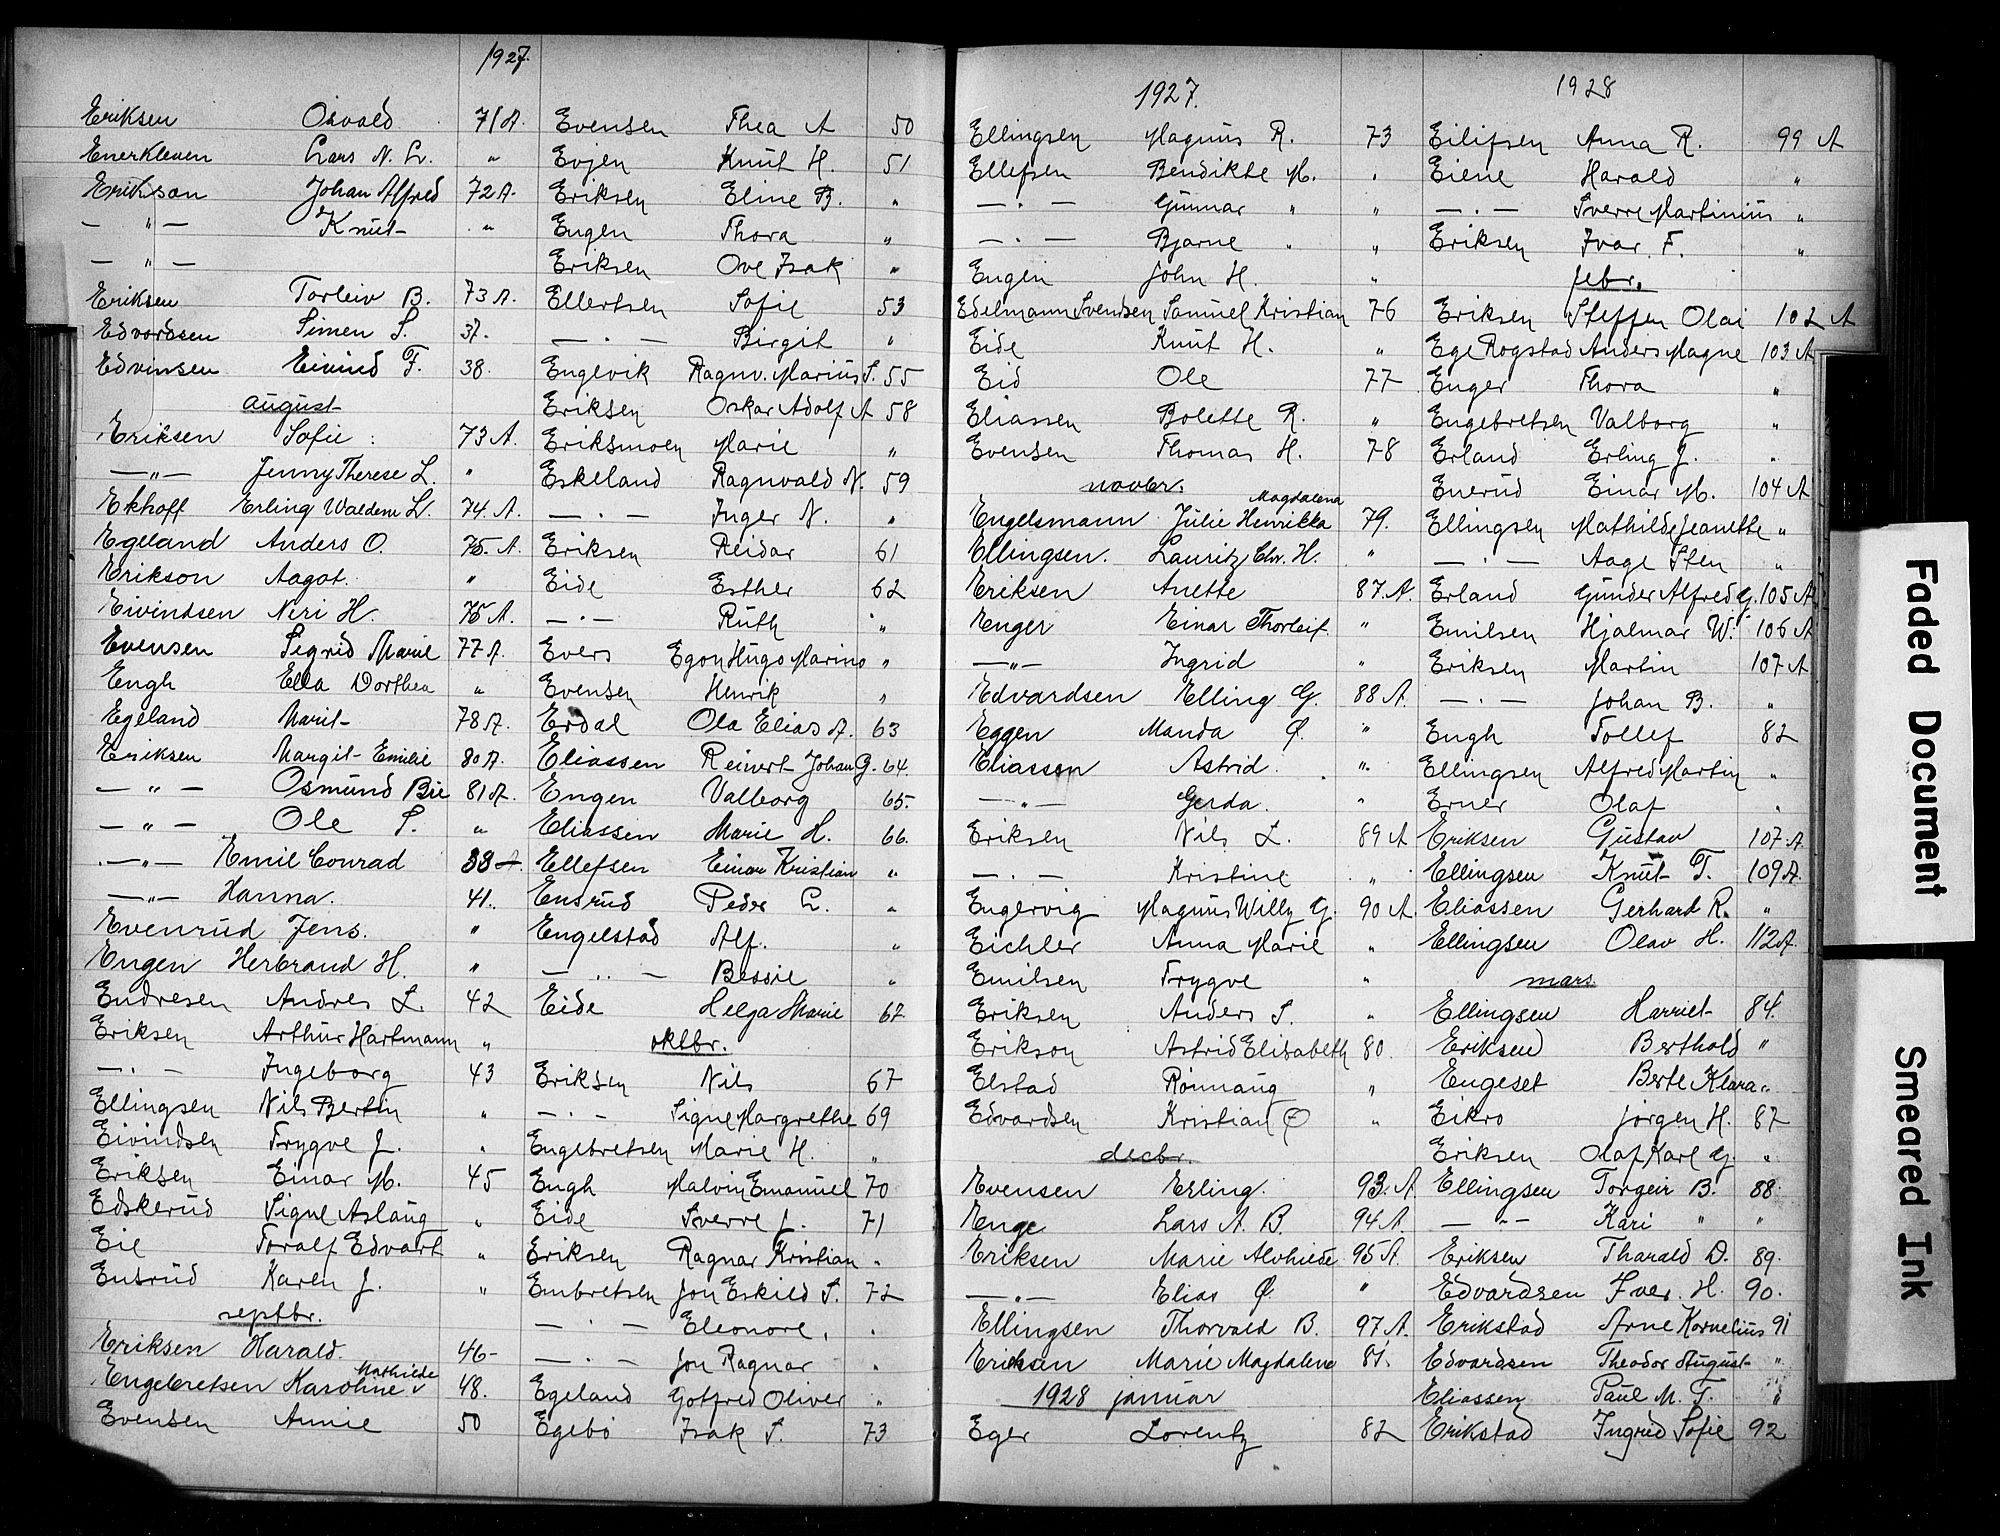 1927.
Eriksen Osvald 71 A.
Enerkleven Lars N. L. "
Erikson Johan Alfred 72 A.
— " — Knut "
— " —
Eriksen Torleiv B. 73 A.
Edvardsen Simen S. 37.
Edvinsen Eivind F. 38.
august
Eriksen Sofie 73 A.
— " — Jenny Therese L. "
Ekhoff Erling Waldem L. 74. A.
Egeland Anders O. 75. A.
Erikson Aagot. "
Eivindsen Neri H. 75 A.
Evensen Sigrid Marie 77 A.
Engh Ella Dorthea "
Egeland Marit 78 A.
Eriksen Margit Emilie 80 A.
— " — Osmund Bie 81 A.
— " — Ole S. "
— " — Emil Conrad 38
— " — Hanna. 41.
Evenrud Jens. "
Engen Herbrand H. "
Endresen Andres L. 42
Eriksen Arthur Hartmann "
— " — Ingeborg 43
Ellingsen Nils Bertin "
Eivindsen Trygve J. "
Eriksen Einar M. 45
Edskerud Signe Aslaug "
Eie Toralf Edvart "
Ensrud Karen J. "
septbr.
Eriksen Harald. 46
Engebretsen Karoline Mathilde 48.
Evensen Annie 50
Evensen Thea A 50
Evjen Knut H. 51
Eriksen Eline B. "
Engen Thora "
Eriksen Ove Isak "
Ellertsen Sofie 53
— " — Birgit "
Engevik Ragnv. Marius S. 55
Eriksen Oskar Adolf A 58
Eriksmoen Marie "
Eskeland Ragnvald N. 59
— " — Inger N. "
Eriksen Reidar 61
Eide Esther 62
— " — Ruth "
Evers Egon Hugo Marino "
Evensen Henrik "
Erdal Ola Elias A. 63
Eliassen Reinert Johan G. 64.
Engen Valborg 65.
Eliassen Marie H. 66.
Ellefsen Einar Kristian "
Ensrud Peder L. "
Engelstad Alf. "
— " — Bessie "
Eide Helga Marie 67
oktbr.
Eriksen Nils 67
— " — Signe Margrethe 69
Engebretsen Marie H. "
Engh Malvin Emanuel 70
Eide Sverre J. 71
Eriksen Ragnar Kristian "
Embretsen Jon Eskild S. 72
— " — Eleonore. "
— " — Jon Ragnar "
Egeland Gotfred Oliver "
Egebö Isak S. 73
1927.
Ellingsen Magnus R. 73
Ellefsen Bendikte M. "
— " — Gunnar " "
— " — Bjarne " "
Engen John H. "
Edelmann Svendsen Samuel Kristian 76
Eide Knut H. "
Eid Ole 77
Eliassen Bolette R. "
Evensen Thomas H. 78
novbr.
Engelsmann Julie Henrikka Magdalena 79.
Ellingsen. Lauritz Chr. H. "
Eriksen Anette 87 A.
Enger Einar Thorleif. "
— " — Ingrid "
Edvardsen Elling G. 88 A.
Eggen Manda Ø. "
Eliassen Astrid. "
— " — Gerda. "
Eriksen Nils L. 89 A
— " — Kristine "
Engervig Magnus Willy G. 90 A.
Eichler Anna Marie "
Emilsen Trygve "
Eriksen Anders S. "
Erikson Astrid Elisabeth 80.
Elstad Rønnaug "
Edvardsen Kristian Ø "
decbr.
Evensen Erling. 93. A
Enge Lars A. B. 94 A.
Eriksen Marie Alvhilde 95 A.
— " — Elias Ø. "
Ellingsen Thorvald B. 97 A.
Eriksen Marie Magdalene 81.
1928 januar
Eger Lorentz 82
1928
Eilifsen Anna R. 99 A
Eiene Harald "
— " — Sverre Martinius "
Eriksen Ivar F. "
febr.
Eriksen Steffen Olai 102 A
Ege Rogstad Anders Magne 103 A
Enger Thora "
Engebretsen Valborg "
Erland Erling J. "
Enerud Einar M. 104 A
Ellingsen Mathilde Jeanette "
— " — Aage Sten "
Erland Gunder Alfred G. 105 A
Emilsen Hjalmar W. 106 A
Eriksen Martin 107 A
— " — Johan B. "
Engh Tollef 82
Ellingsen Alfred Martin "
Erner Olaf "
Eriksen Gustav 107 A.
Ellingsen Knut T. 109 A.
Eliassen Gerhard R. "
Ellingsen Olav H. 112 A.
mars
Ellingsen Harriet 84.
Eriksen Berthold "
Engeset Berte Klara "
Eikro Jørgen H. 87
Eriksen Olaf Karl G. "
Ellingsen Torgeir B. 88.
— " — Kari " "
Eriksen Tharald D. 89.
Edvardsen Iver. H. 90.
Erikstad Arne Kornelius 91
Edvardsen Theodor August "
Eliassen Paul M. T. "
Erikstad Ingrid Sofie 92
Faded Document
Smeared Ink